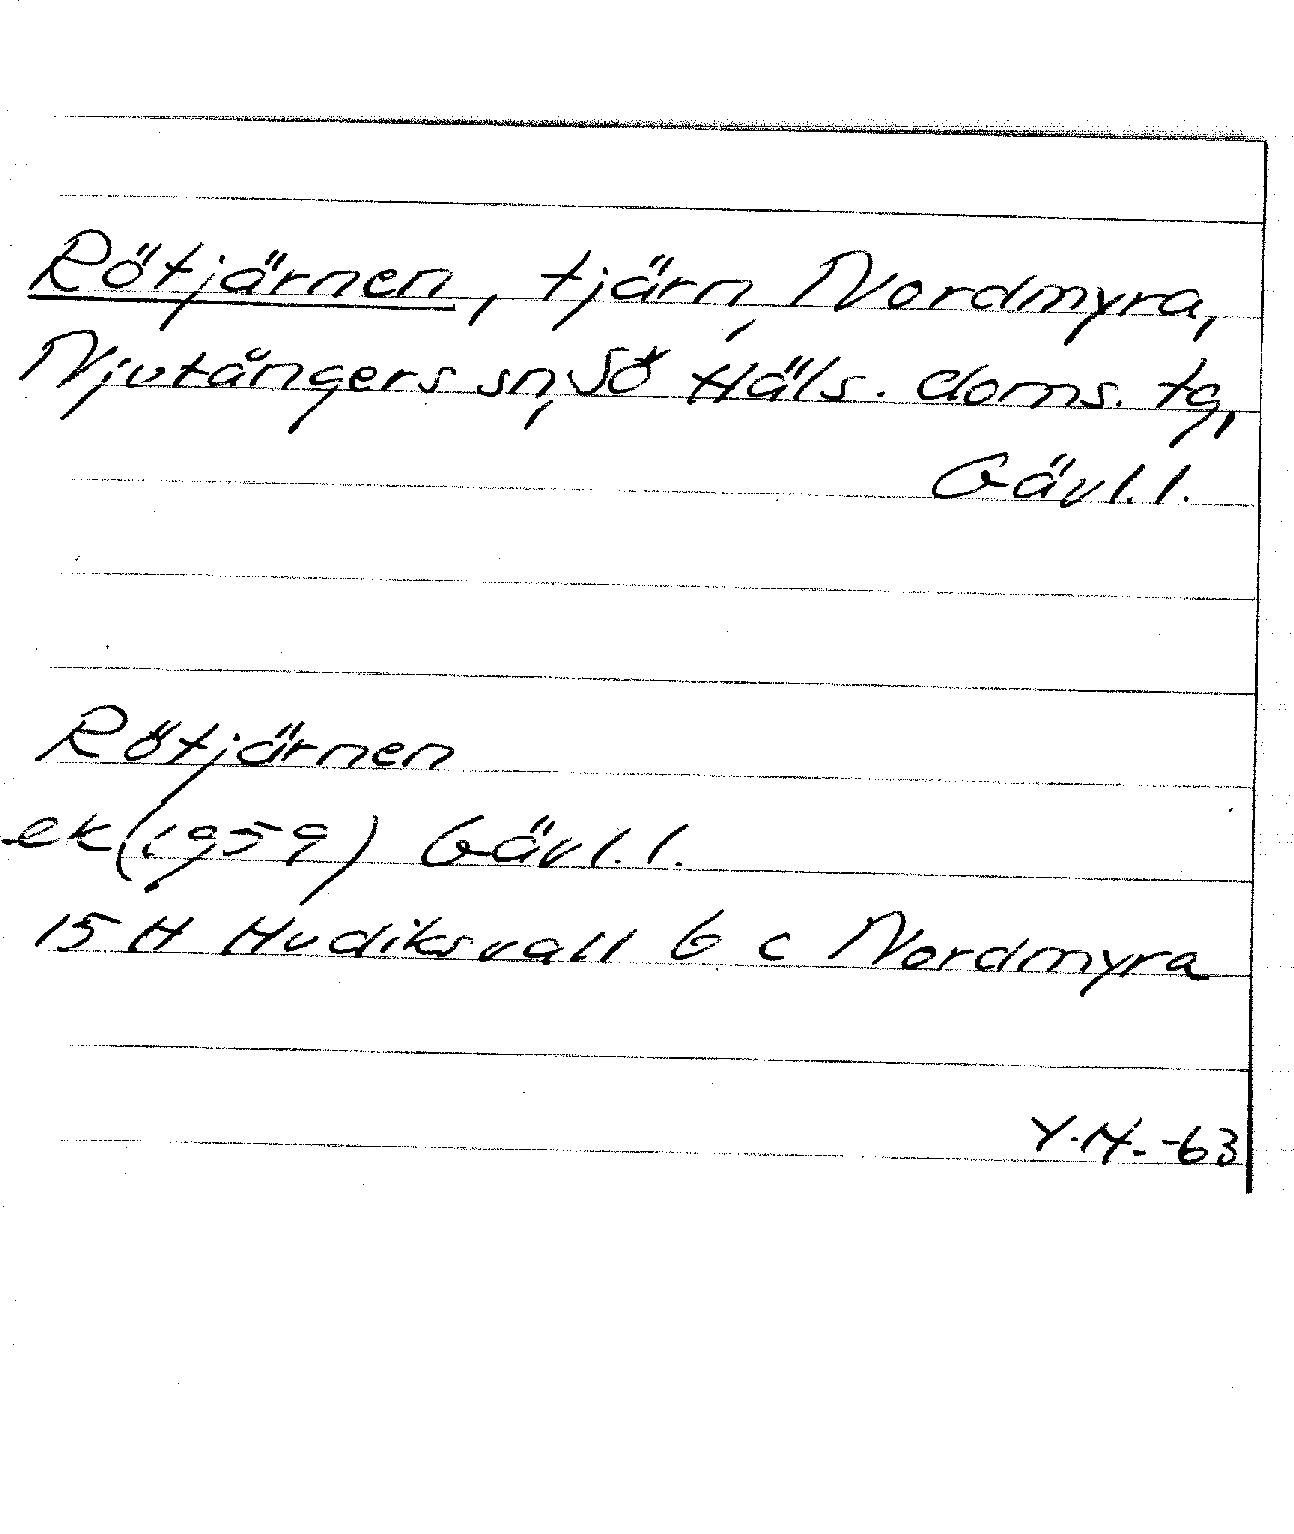 Rötjärnen, tjärn, Nordmyra,
Njutångers sn, Sö Häls. doms. tg,
Gävl.l.
Rötjärnen
ek (1959) Gävl.l.
15 H Hudiksvall 6 c Nordmyra
Y.H. -63